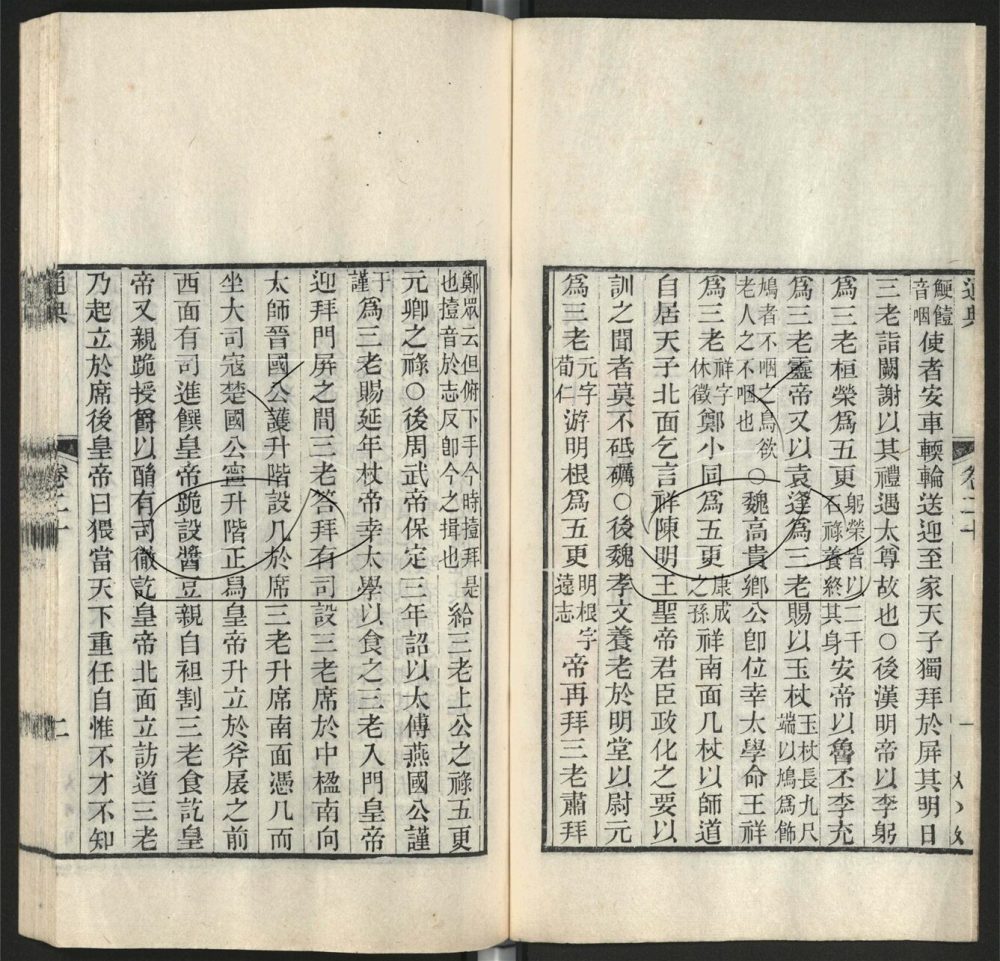 通典
鯁饐音咽使者安車輭輪送迎至家天子獨拜於屏其明日
三老詣闕謝以其禮遇太尊故也○後漢明帝以李躬
為三老桓榮為五更躬榮皆以二千石祿養終其身安帝以魯丕李充
為三老靈帝又以袁逢為三老賜以玉杖玉杖長九尺端以鳩為飾
鳩者不咽之鳥欲老人之不咽也○魏高貴鄉公卽位幸太學命王祥
為三老祥字休徵鄭小同為五更康成之孫祥南面几杖以師道
自居天子北面乞言祥陳明王聖帝君臣政化之要以
訓之聞者莫不砥礪○後魏孝文養老於明堂以尉元
為三老元字荀仁游明根為五更明根字遠志帝再拜三老肅拜
鄭眾云但俯下手今時撎拜是也撎音於志反卽今之揖也給三老上公之祿五更
元卿之祿○後周武帝保定三年詔以太傅燕國公謹
于謹為三老賜延年杖帝幸太學以食之三老入門皇帝
迎拜門屏之間三老答拜有司設三老席於中楹南向
太師晉國公護升階設几於席三老升席南面憑几而
坐大司寇楚國公寧升階正舄皇帝升立於斧扆之前
西面有司進饌皇帝跪設醬豆親自袒割三老食訖皇
帝又親跪授爵以酳有司徹訖皇帝北面立訪道三老
乃起立於席後皇帝曰猥當天下重任自惟不才不知
通典
卷二十
二